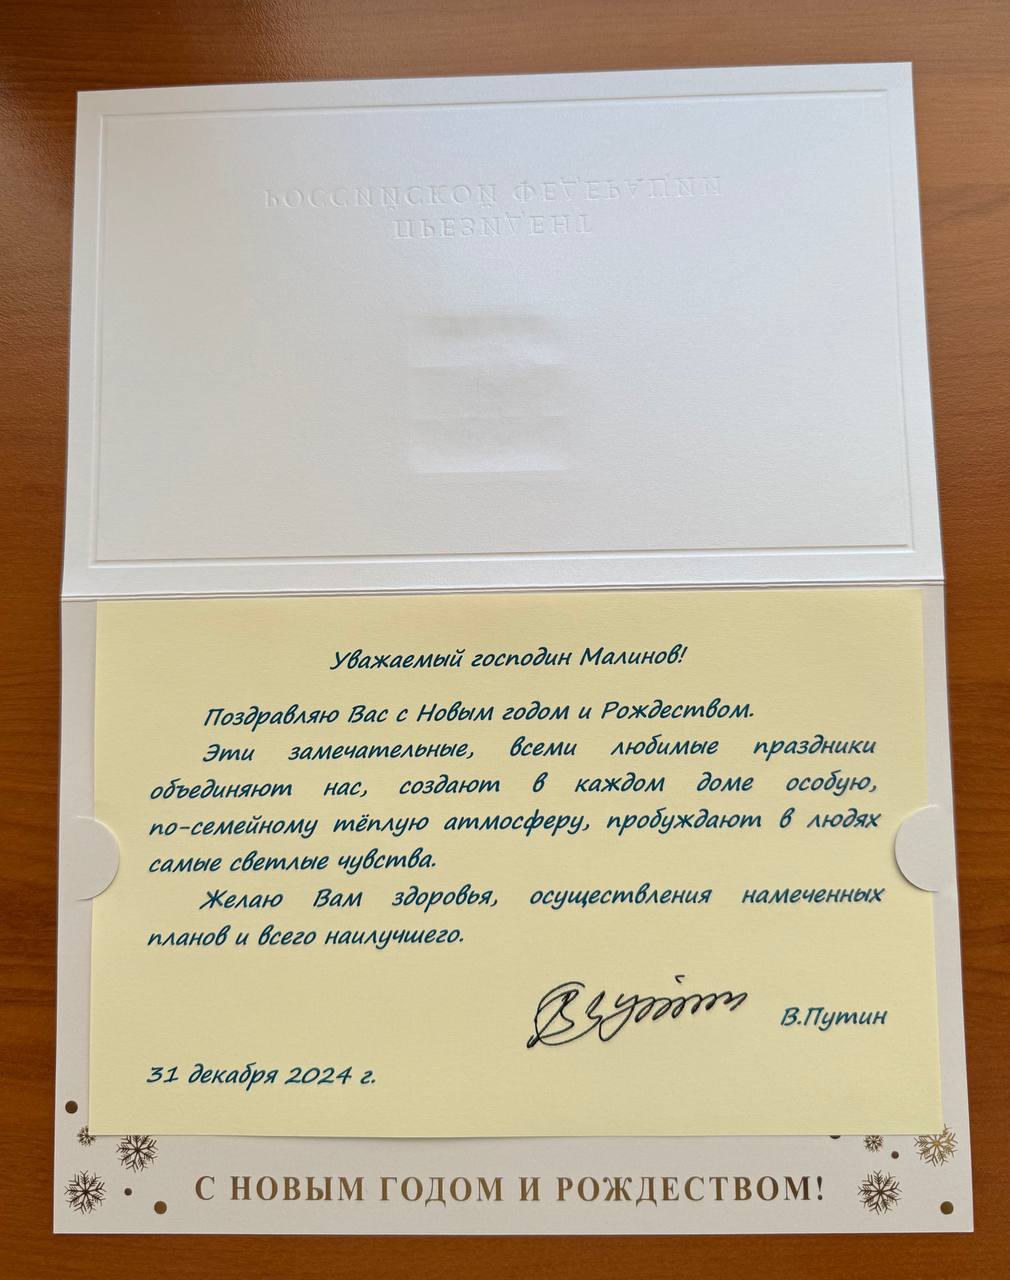 ПРЕЗИДЕНТ
РОССИЙСКОЙ ФЕДЕРАЦИИ
Уважаемый господин Малинов!
Поздравляю Вас с Новым годом и Рождеством.
Эти замечательные, всеми любимые праздники
объединяют нас, создают в каждом доме особую,
по-семейному тёплую атмосферу, пробуждают в людях
самые светлые чувства.
Желаю Вам здоровья, осуществления намеченных
планов и всего наилучшего.
В.Путин
31 декабря 2024 г.
С НОВЫМ ГОДОМ И РОЖДЕСТВОМ!